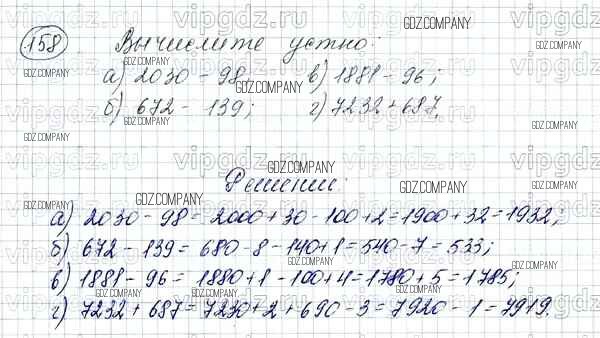 158 Вычислите устно:
а) 2030 - 98; в) 1881 - 96;
б) 672 - 139; г) 7232 + 687.
Решение:
а) 2030 - 98 = 2000 + 30 - 100 + 2 = 1900 + 32 = 1932;
б) 672 - 139 = 680 - 8 - 140 + 1 = 540 - 7 = 533;
в) 1881 - 96 = 1880 + 1 - 100 + 4 = 1780 + 5 = 1785;
г) 7232 + 687 = 7230 + 2 + 690 - 3 = 7920 - 1 = 7919.
vipgdz.ru
GDZ.COMPANY